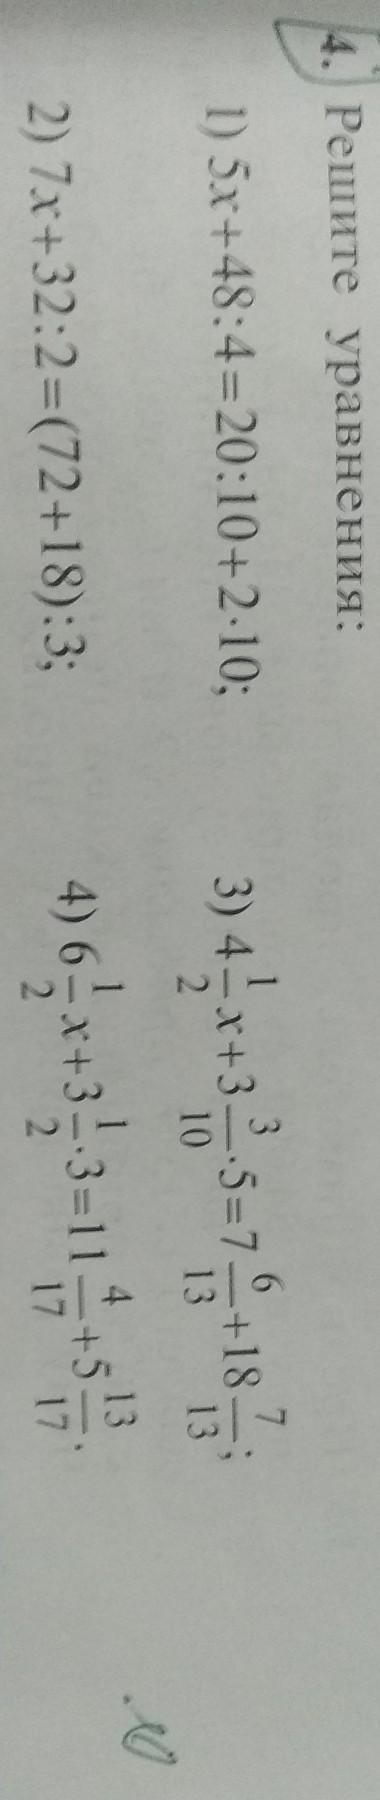 4. Решите уравнения:
1) 5x+48:4=20:10+2·10;
2) 7x+32:2=(72+18):3;
3) 4 1/2 x+3 3/10 ·5=7 6/13 +18 7/13;
4) 6 1/2 x+3 1/2 ·3=11 4/17 +5 13/17.